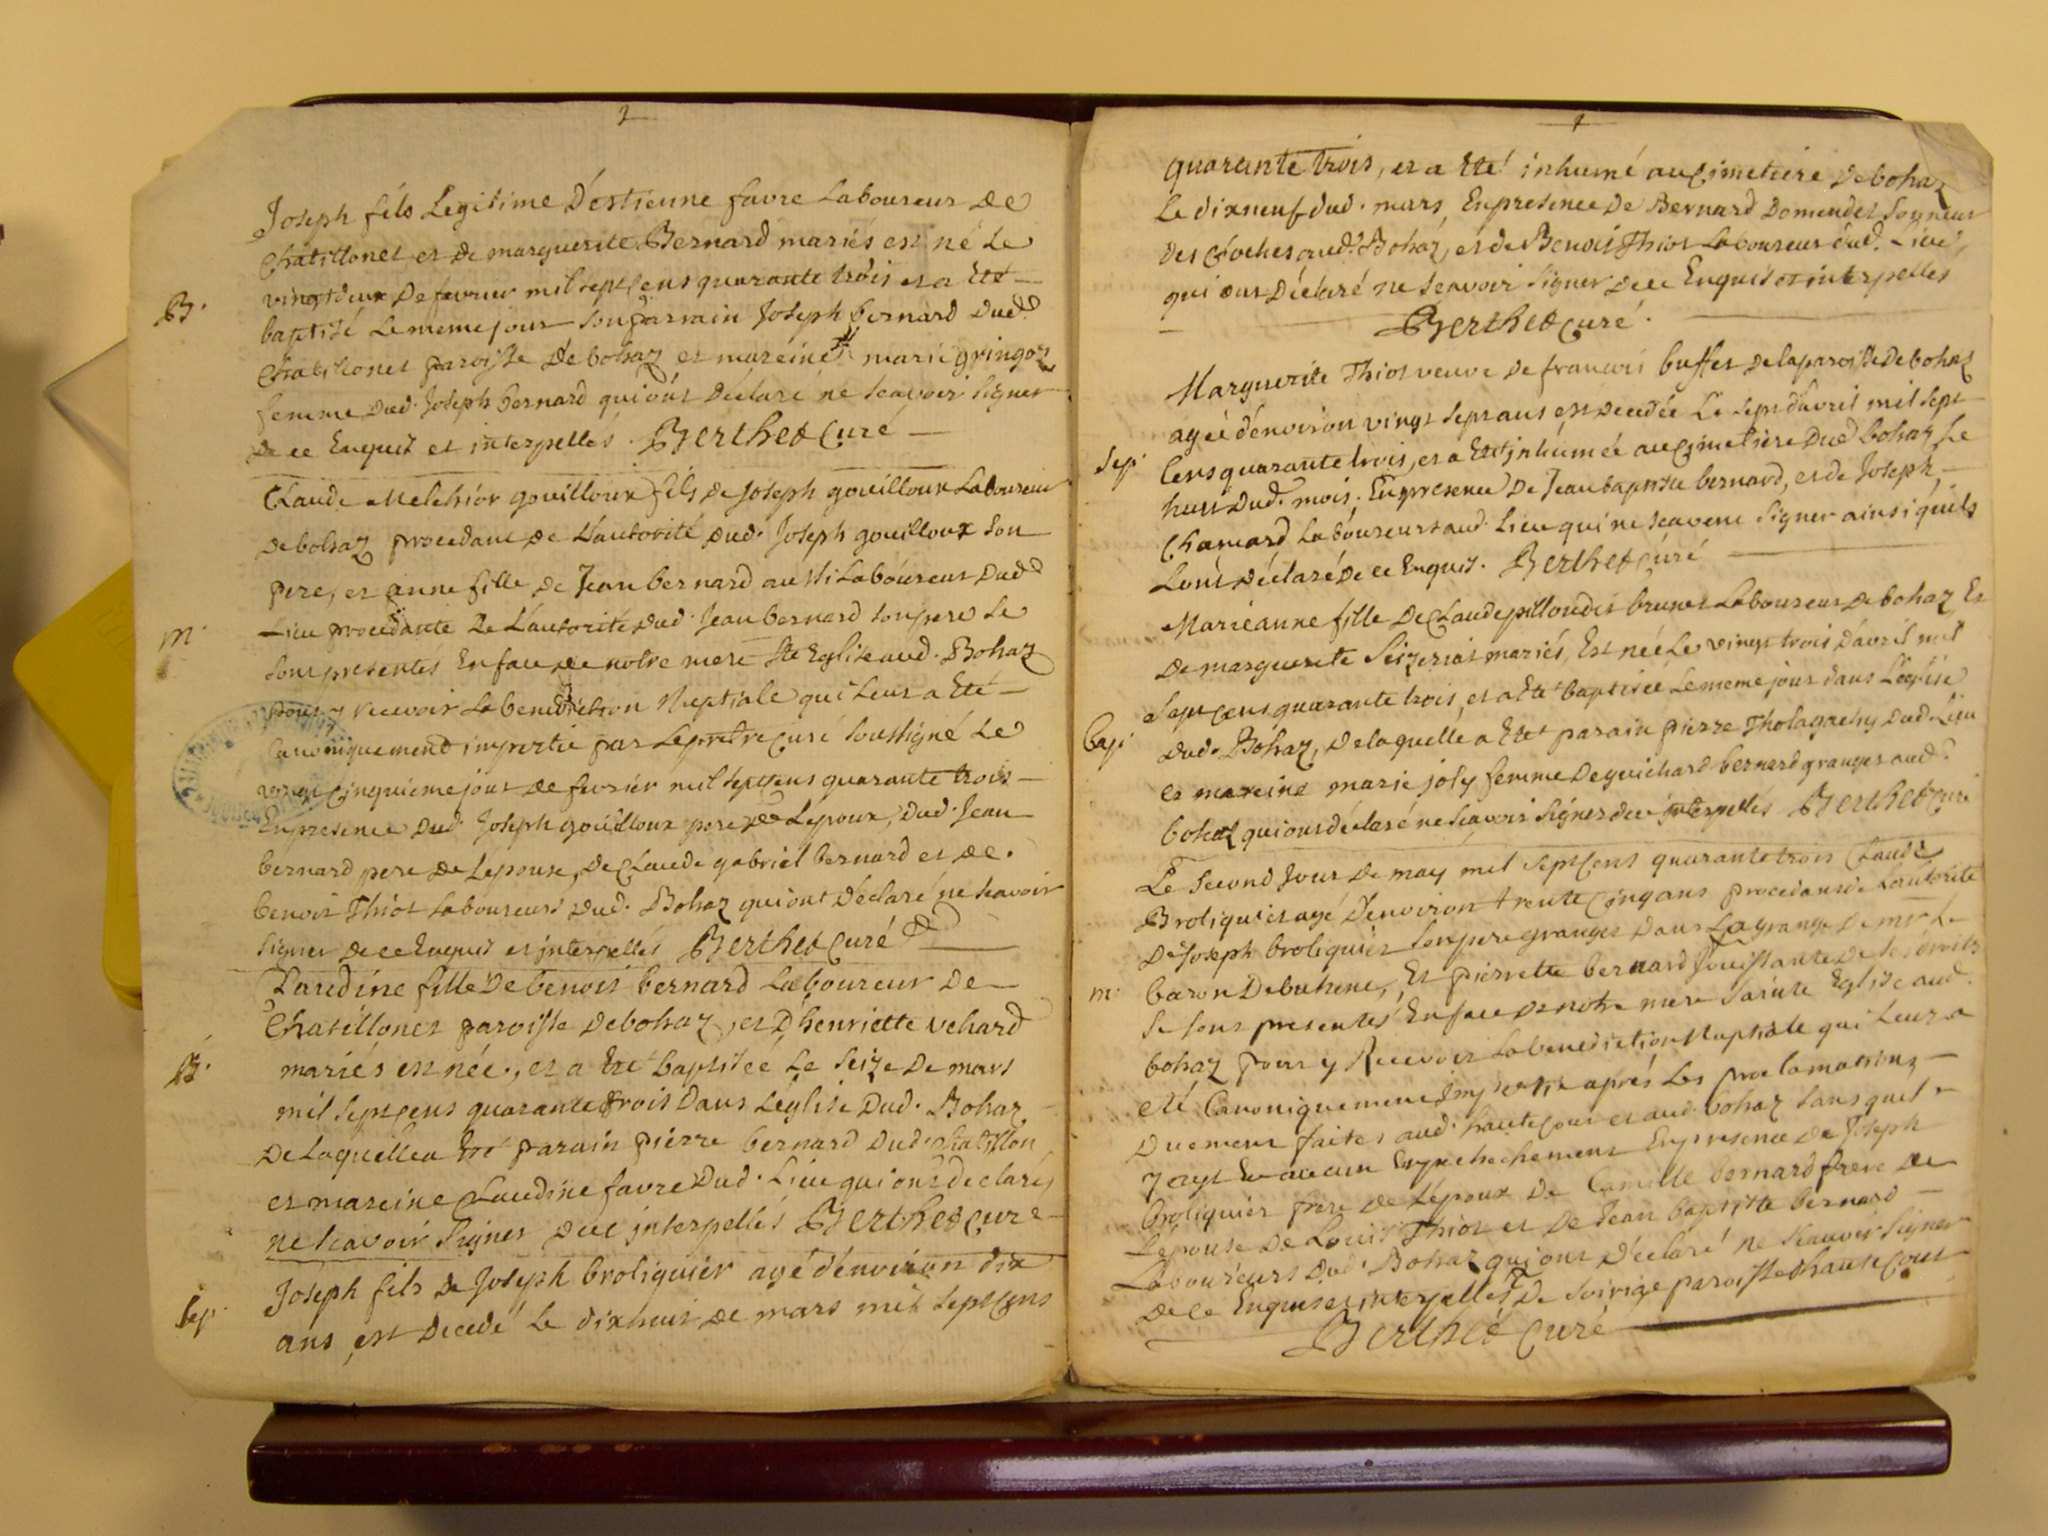 Joseph fils Legitime D'estienne favre Laboureur de
Chatillonet et de marguerite Bernard mariés est né Le
B. vingtdeux de fevrier mil sept cens quarante trois et a Eté
baptisé Le meme jour son parrain Joseph bernard dud.
Chatillonet paroisse de bohaz et mareine marie gringoz
femme dud. Joseph bernard qui ont déclaré ne scavoir signer
de ce Enquis et interpellés. Berthet Curé
Claude Melchior gouilloux fils de Joseph gouilloux Laboureur
de bohaz procedant de L'autorité dud. Joseph gouilloux son
pere, et anne fille de Jean bernard aussi Laboureur dud
m. Lieu procedante de L'autorité dud. Jean bernard son pere se
sont presentés En face de notre mere Ste Eglise aud. Bohaz
pour y recevoir La benediction Nuptiale qui Leur a Eté
Canoniquement impertie par Le pretre curé soussigné Le
vingt Cinquieme jour de fevrier mil sept cens quarante trois
En presence dud. Joseph gouilloux pere de L'epoux, dud. Jean
bernard pere de L'epouse, de Claude gabriel bernard et de
benoit Thiot Laboureurs dud. Bohaz qui ont déclaré ne scavoir
signer de ce Enquis et interpellés Berthet Curé
Claudine fille de benoit bernard Laboureur de
Chatillonet paroisse de bohaz, et D'henriette vehard
B. mariés est née, et a Eté baptisée Le seize de mars
mil sept cens quarante trois dans L'eglise dud. Bohaz
de Laquelle a Eté parain pierre bernard dud. chatillon
et mareine Claudine favre dud. Lieu qui ont declarés
ne scavoir signer de ce interpellés Berthet Curé
Joseph fils de Joseph broliquier agé d'environ dix
Sep. ans, est decedé Le dixhuit de mars mil sept cens
quarante trois, et a Eté inhumé au Cimetiere de bohaz
Le dixneuf dud. mars En presence de Bernard Domendet sonneur
des cloches aud. Bohaz, et de Benoit Thiot Laboureur dud. Lieu,
qui ont Déclaré ne scavoir signer de ce Enquis et interpelles
Berthet Curé.
Marguerite Thiot veuve de francois buffet de la paroisse de bohaz
agée d'environ vingt sept ans est decedée Le sept d'avril mil sept
Sep. Cens quarante trois, et a Eté inhumée au Cimetiere dud bohaz Le
huit dud. mois. En presence de Jean baptiste bernard, et de Joseph
Chanard Laboureurs aud. Lieu qui ne scavent signer ainsi qu'ils
L'ont déclaré de ce Enquis. Berthet Curé
Marieanne fille de Claude pillon dit brunet Laboureur de bohaz Et
de marguerite Seizeriat mariés, Est née Le vingt trois d'avril mil
sept cens quarante trois, et a Eté baptisée Le meme jour dans L'eglise
Bap. dud. Bohaz, de laquelle a Eté parain pierre Tholagnehy dud. Lieu
et mareine marie joly femme de guichard bernard granger aud.
bohaz qui ont déclaré ne scavoir signer de ce interpellés Berthet Curé
Le second Jour de may mil sept cens quarante trois Claude
Broliquier agé D'environ trente Cinq ans procedant de L'autorité
de Joseph broliquier son pere granger dans La grange de mr. Le
m. baron de buhene, Et pierrette bernard Jouissante de ses droits
se sont presentés En face de notre mere sainte Eglise aud.
bohaz pour y Recevoir La benediction Nuptiale qui Leur a
eté Canoniquement Impertie aprés Les proclamations
duement faites aud. hautecour et aud. bohaz sans quil
y ayt Eu aucun Empechement En presence de Joseph
broliquier frere de L'epoux de Camille bernard frere de
L'epouse de Louis Thiot et de Jean baptiste bernard
Laboureurs dud. Bohaz qui ont déclaré ne scavoir signer
de ce Enquis et interpellés de soirige paroisse d'hautecour
Berthet Curé